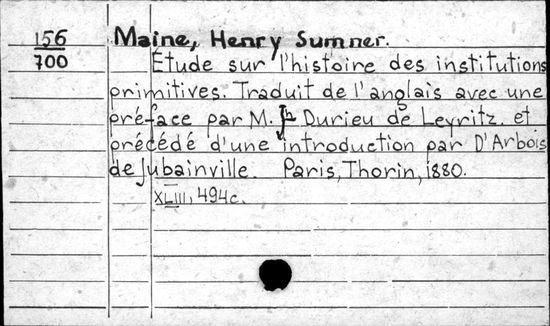 156
700
Maine, Henry Sumner.
Étude sur l'histoire des institutions
primitives. Traduit de l'anglais avec une
préface par M. Jh Durieu de Leyritz. et
précédé d'une introduction par D'Arbois
de Jubainville. Paris, Thorin, 1880.
XLIII, 494c.